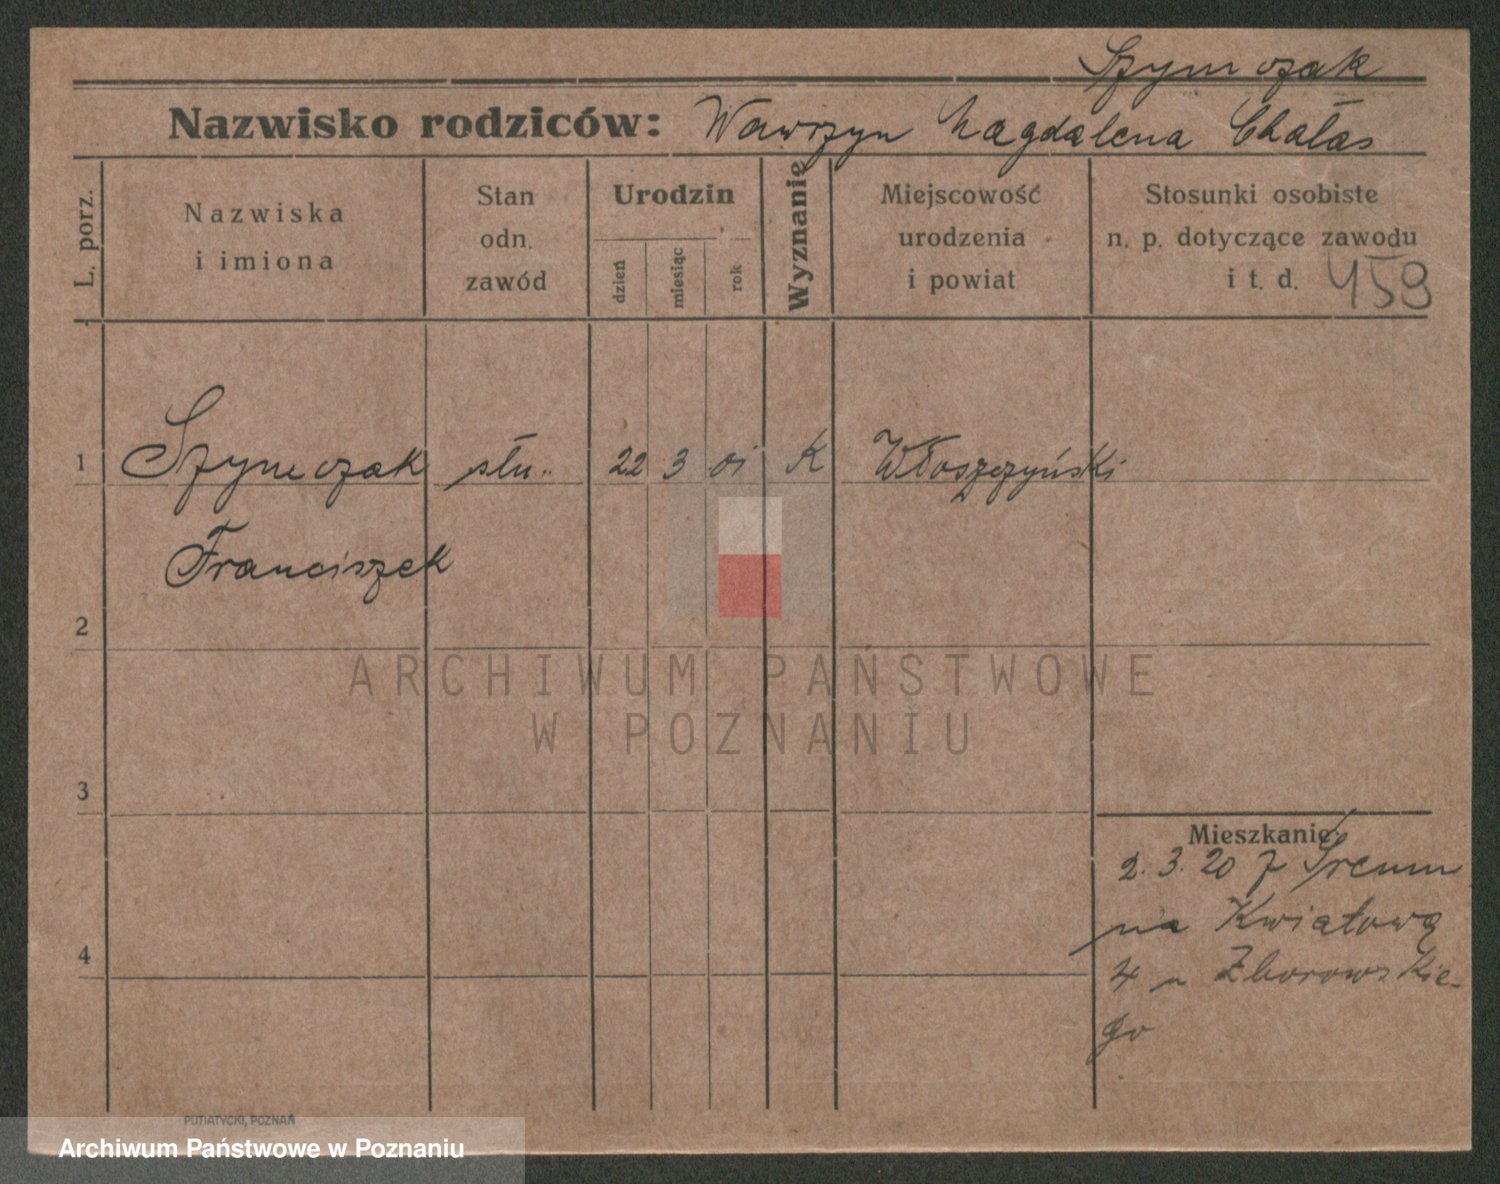 Szymczak
Nazwisko rodziców: Wawrzyn Magdalena Chałas
L. porz.
Nazwiska
i imiona
Stan
odn.
zawód
Urodzin
dzień
miesiąc
rok
Wyznanie
Miejscowość
urodzenia
i powiat
Stosunki osobiste
n. p. dotyczące zawodu
i t. d. 459
1 Szymczak słu. 22 3 01 K Włoszczyński
Franciszek
2
ARCHIWUM PAŃSTWOWE
W POZNANIU
3
Mieszkanie:
2. 3. 20 z Śremu
na Kwiatową
4
4 u Zborowskie-
go
PUTIATYCKI, POZNAŃ
Archiwum Państwowe w Poznaniu